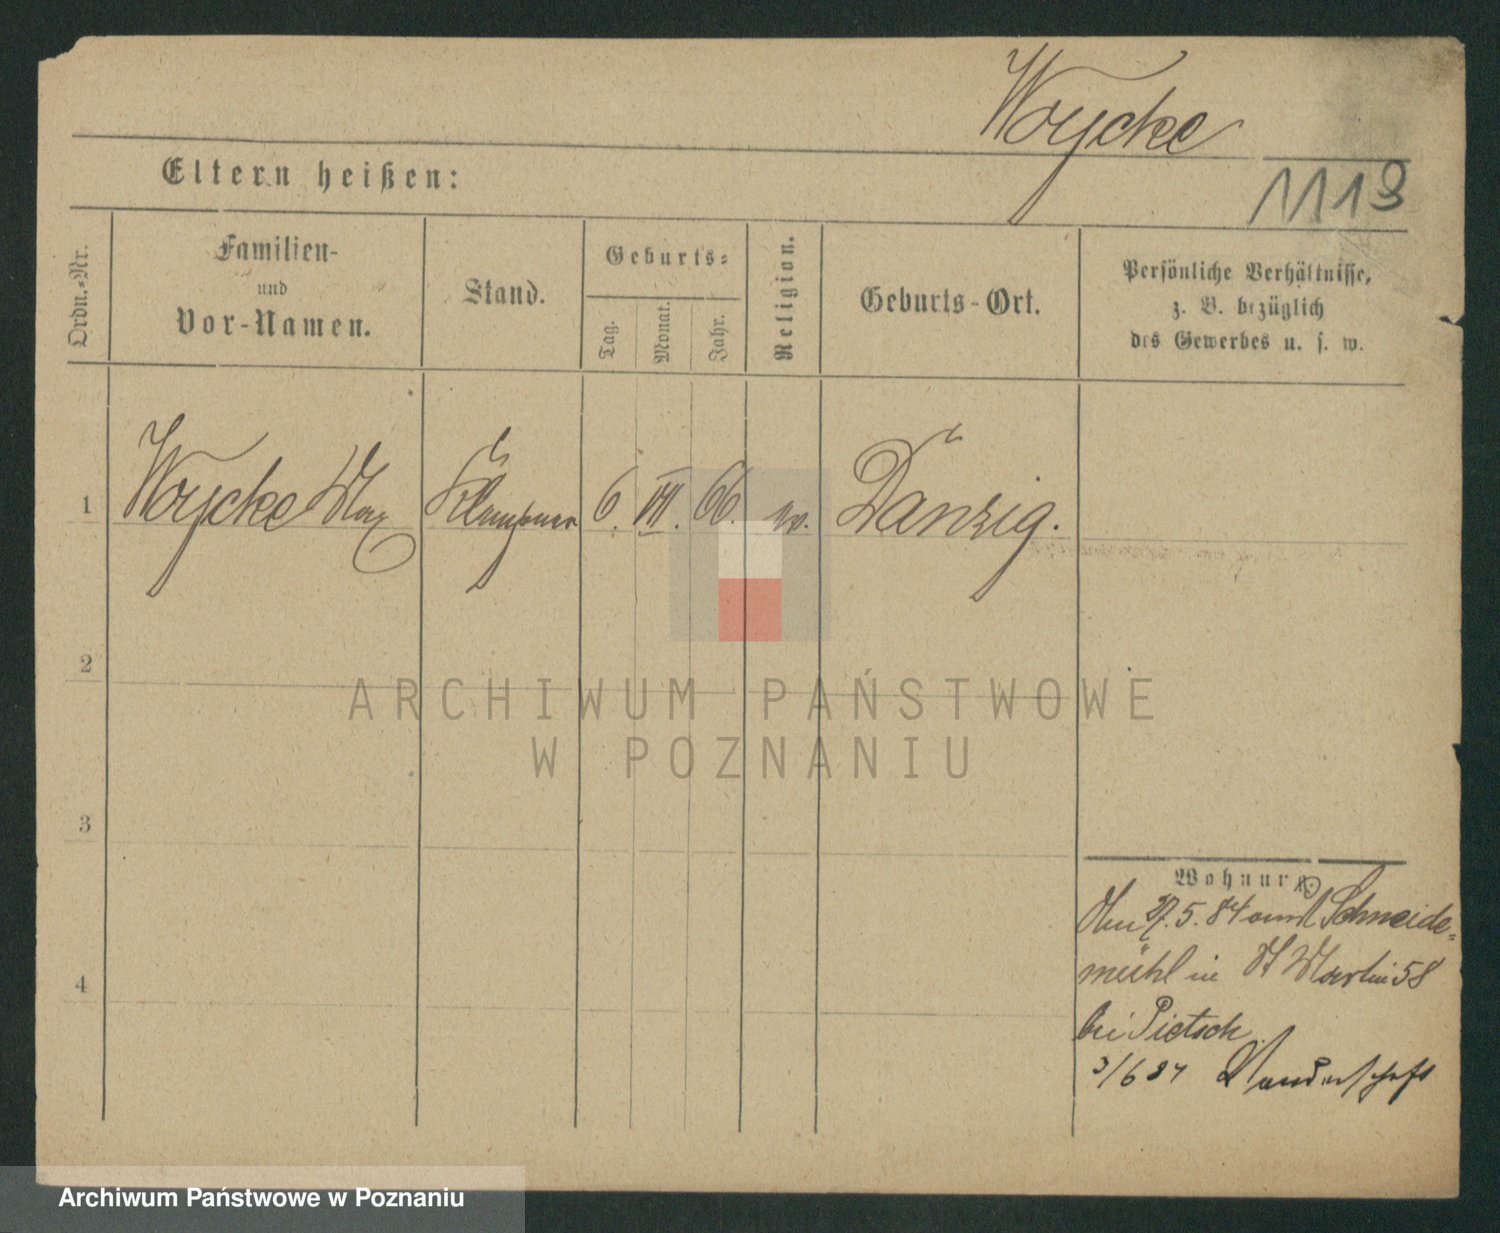 Woycke
1113
Eltern heißen:
Ordn.-Nr.
Familien-
und
Vor-Namen.
Stand.
Geburts-
Tag.
Monat.
Jahr.
Religion.
Geburts-Ort.
Persönliche Verhältnisse,
z. B. bezüglich
des Gewerbes u. s. w.
1 Woycke Max Klempner 6. VII. 66. Danzig.
2
ARCHIWUM PAŃSTWOWE
W POZNANIU
3
Wohnung.
27. 5. 84 Schneide-
mühl in St Martin 58
bei Pietsch.
3/6 84 Wanderschaft
4
Archiwum Państwowe w Poznaniu